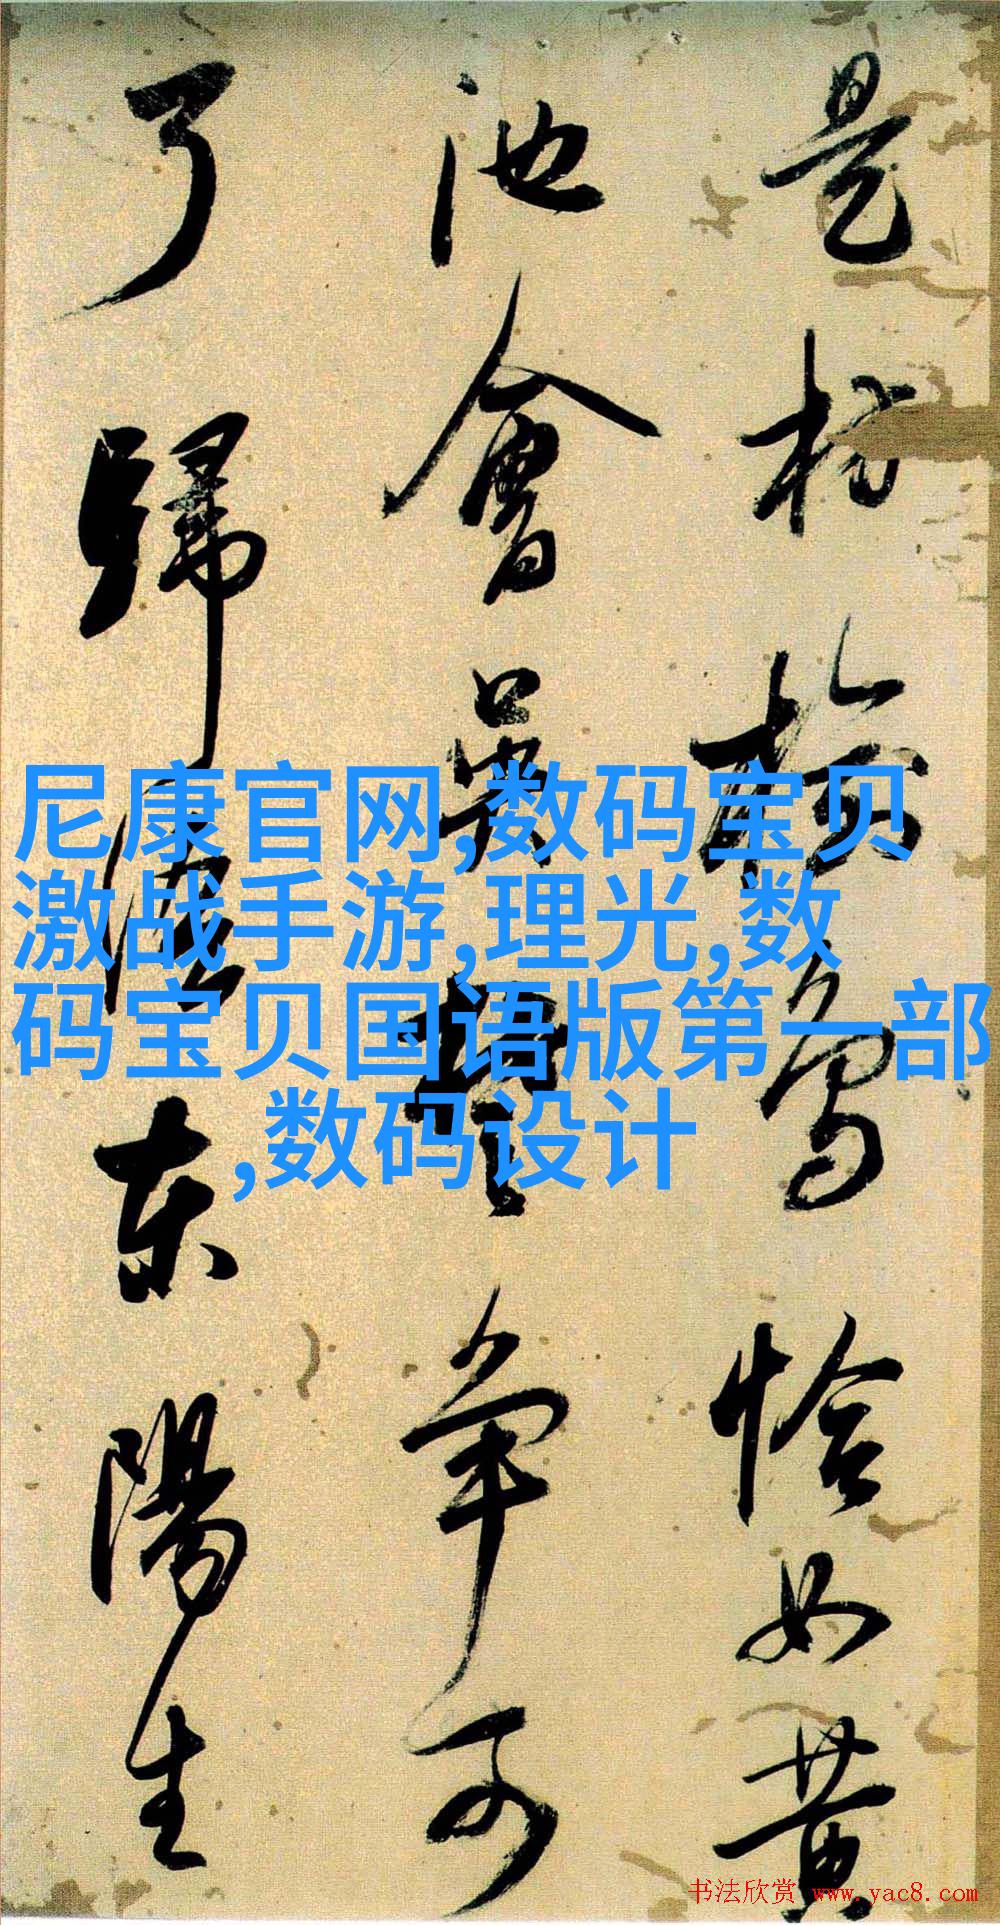 是枋榆恰如黄
池會吳爭可
了歸東陽生
尼康官网,数码宝贝
激战手游,理光,数
码宝贝国语版第一部
,数码设计
书法欣赏 www.yac8.com